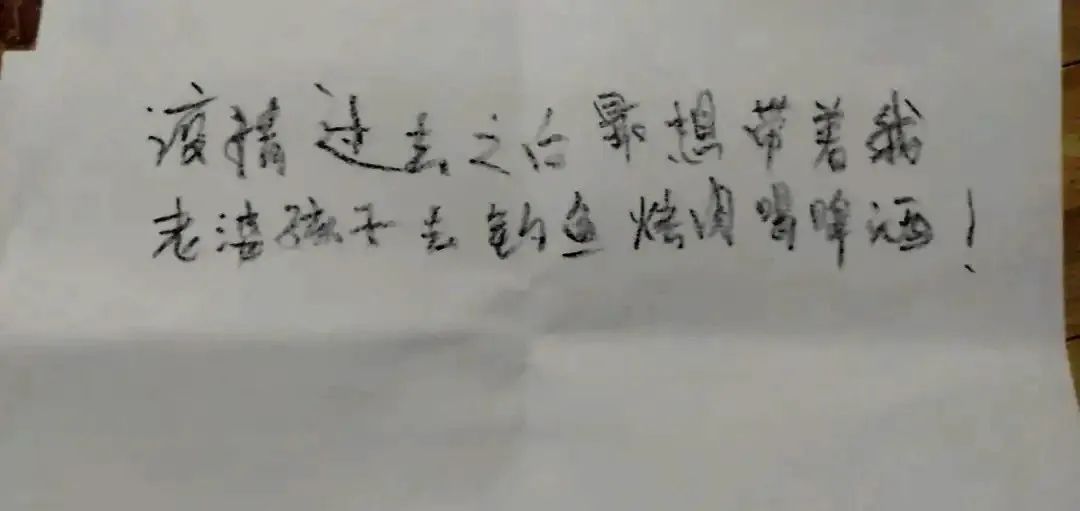 疫情过去之后最想带着我
老婆孩子去钓鱼烤肉喝啤酒！